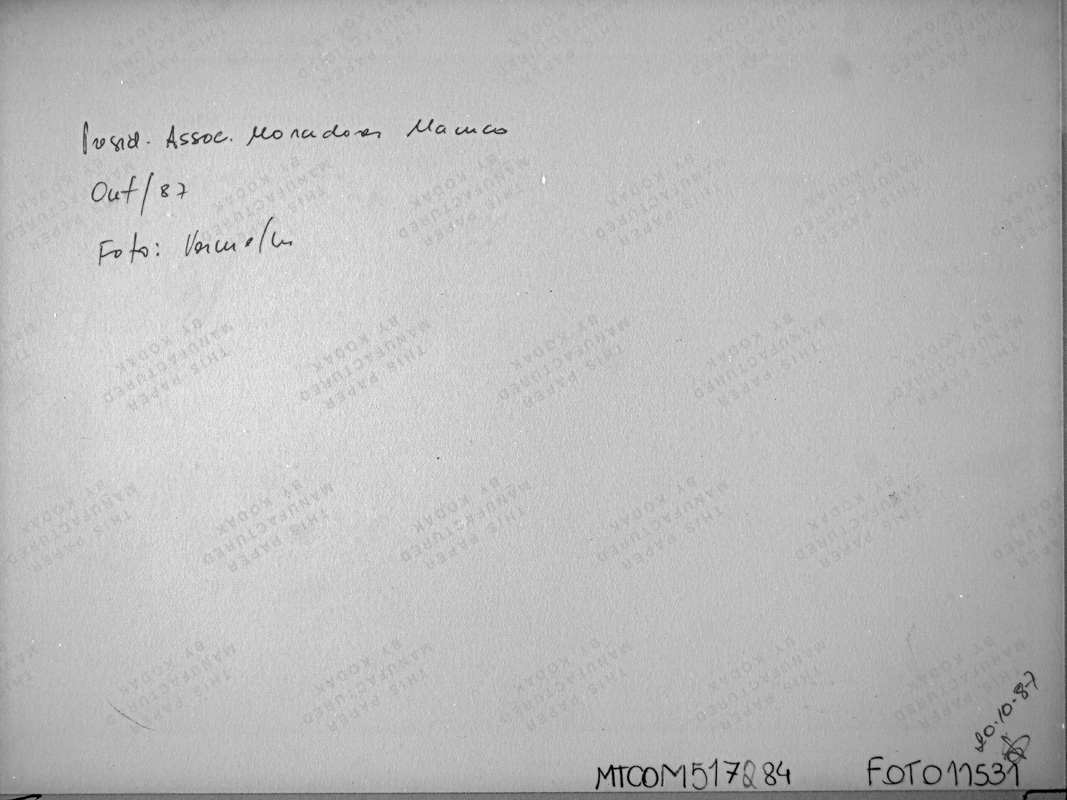 Presid. Assoc. Moradores
Out/87
Foto:
THIS PAPER
MANUFACTURED
BY KODAK
20.10.87
MTCOM517284 FOTO11531